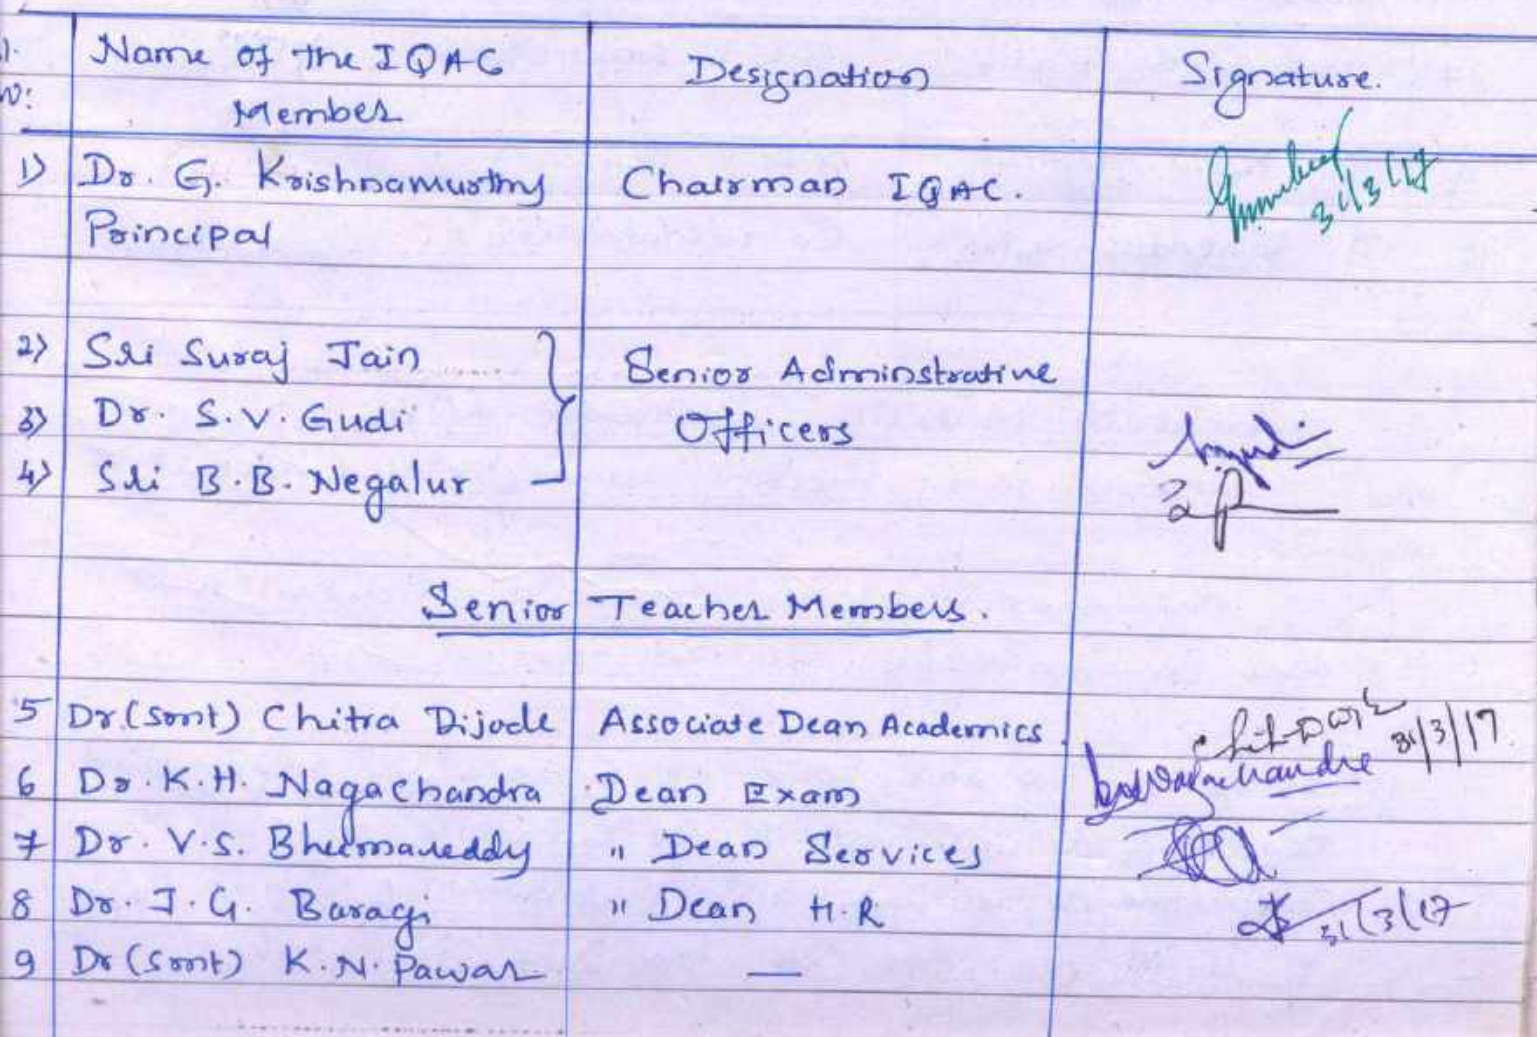 Name of the IQAC Designation Signature.
Member
1) Dr. G. Krishnamurthy Chairman IQAC.
31/3/17
Principal
2) Sri Suraj Jain Senior Adminstrative
3) Dr. S.V. Gudi Officers
4) Sri B.B. Negalur
Senior Teacher Members.
5 Dr (Smt) Chitra Dijode Associate Dean Academics
31/3/17
6 Dr. K.H. Nagachandra Dean Exam
7 Dr. V.S. Bheemareddy " Dean Services
8 Dr. J.G. Baragi " Dean H.R
31/3/17
9 Dr (Smt) K.N. Pawar —